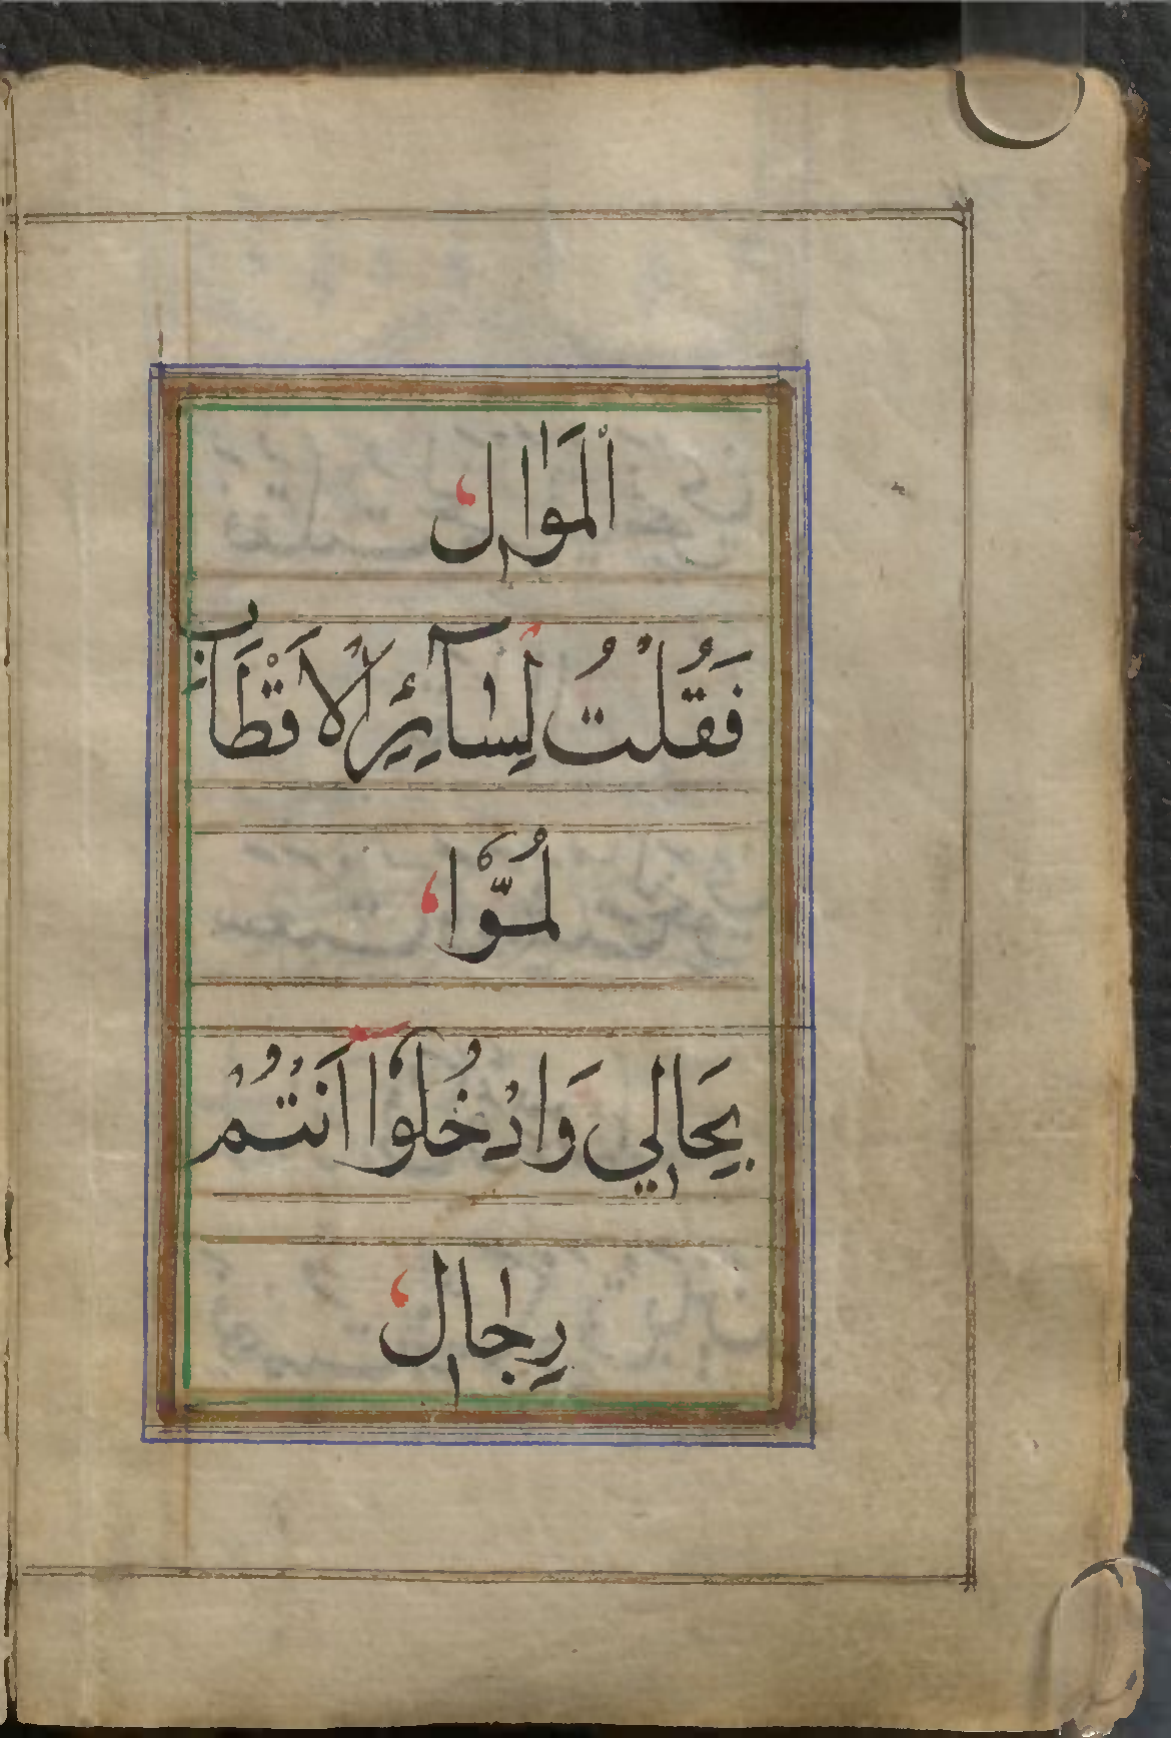 اْلمَوٰالِ
فَقُلْتُ لِسٰآئِرِ الْاَقْطَابِ
لُمُّوا
بِحَالِي وَادْخُلُوا اَنْتُمْ
رِجٰالِ